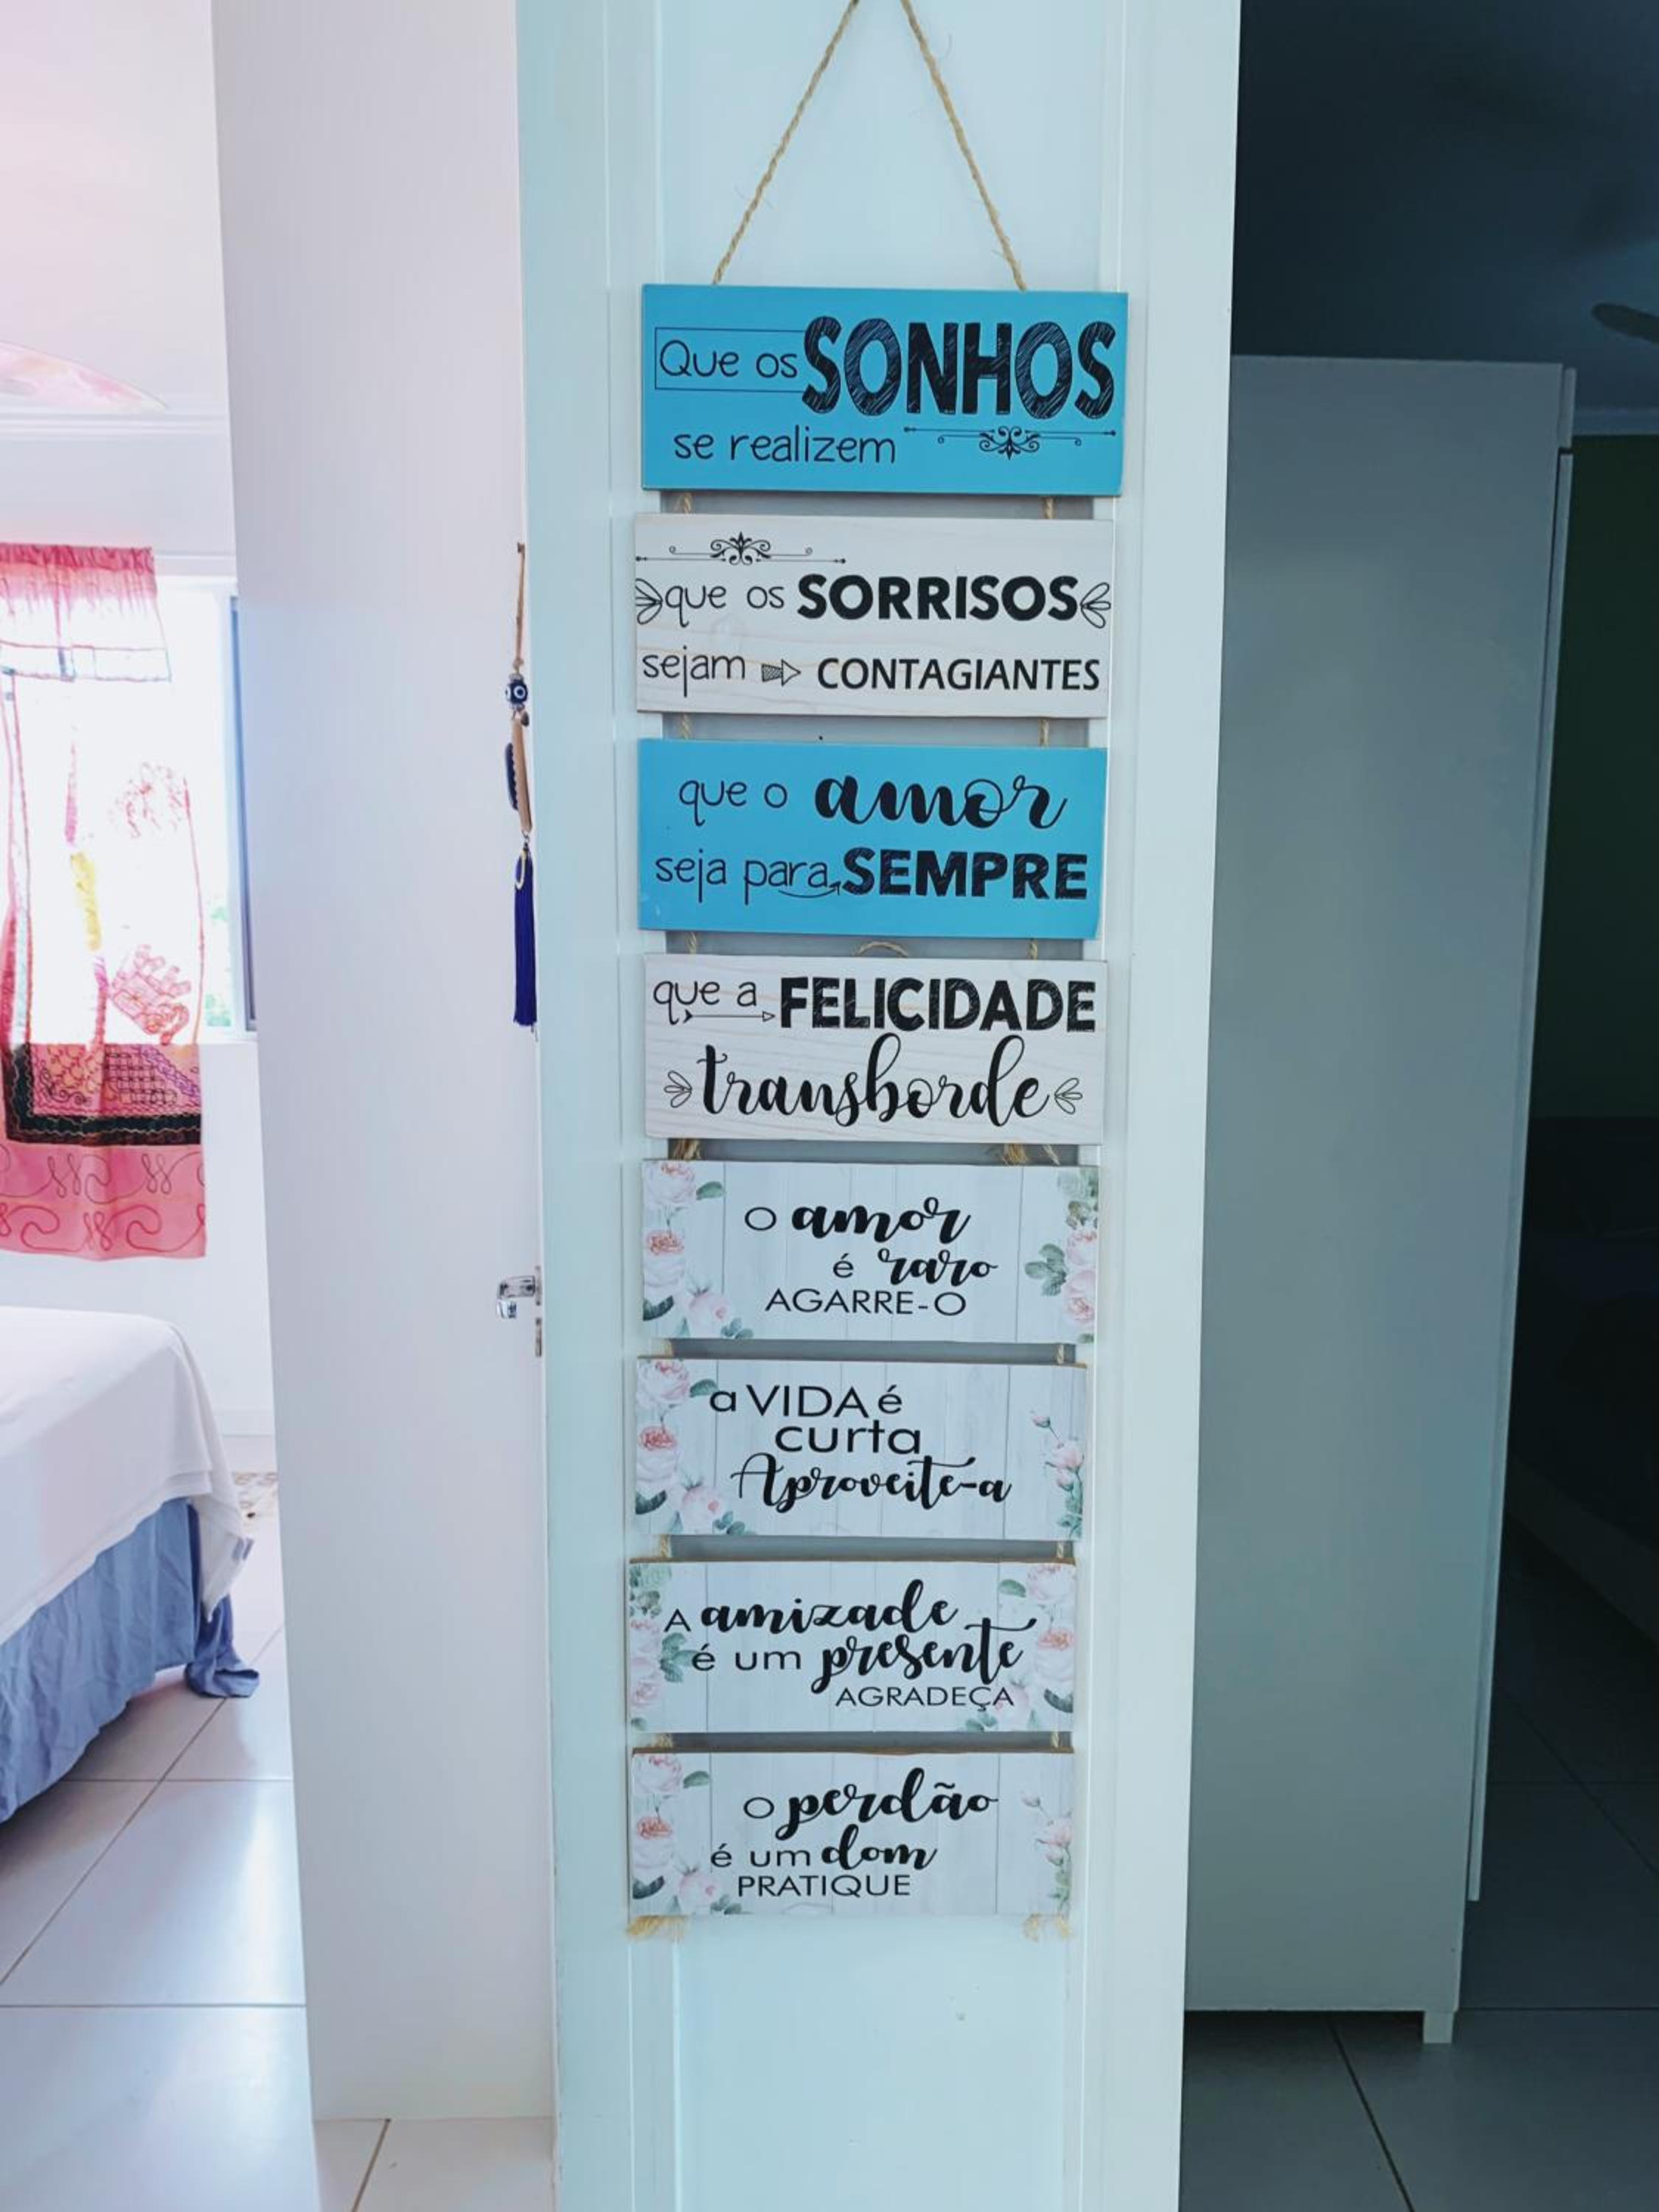 Que os SONHOS
se realizem
que os SORRISOS
sejam CONTAGIANTES
que o amor
seja para SEMPRE
que a FELICIDADE
transborde
O amor
é raro
AGARRE-O
a VIDA é
curta
Aproveite-a
A amizade
é um presente
AGRADEÇA
O perdão
é um dom
PRATIQUE